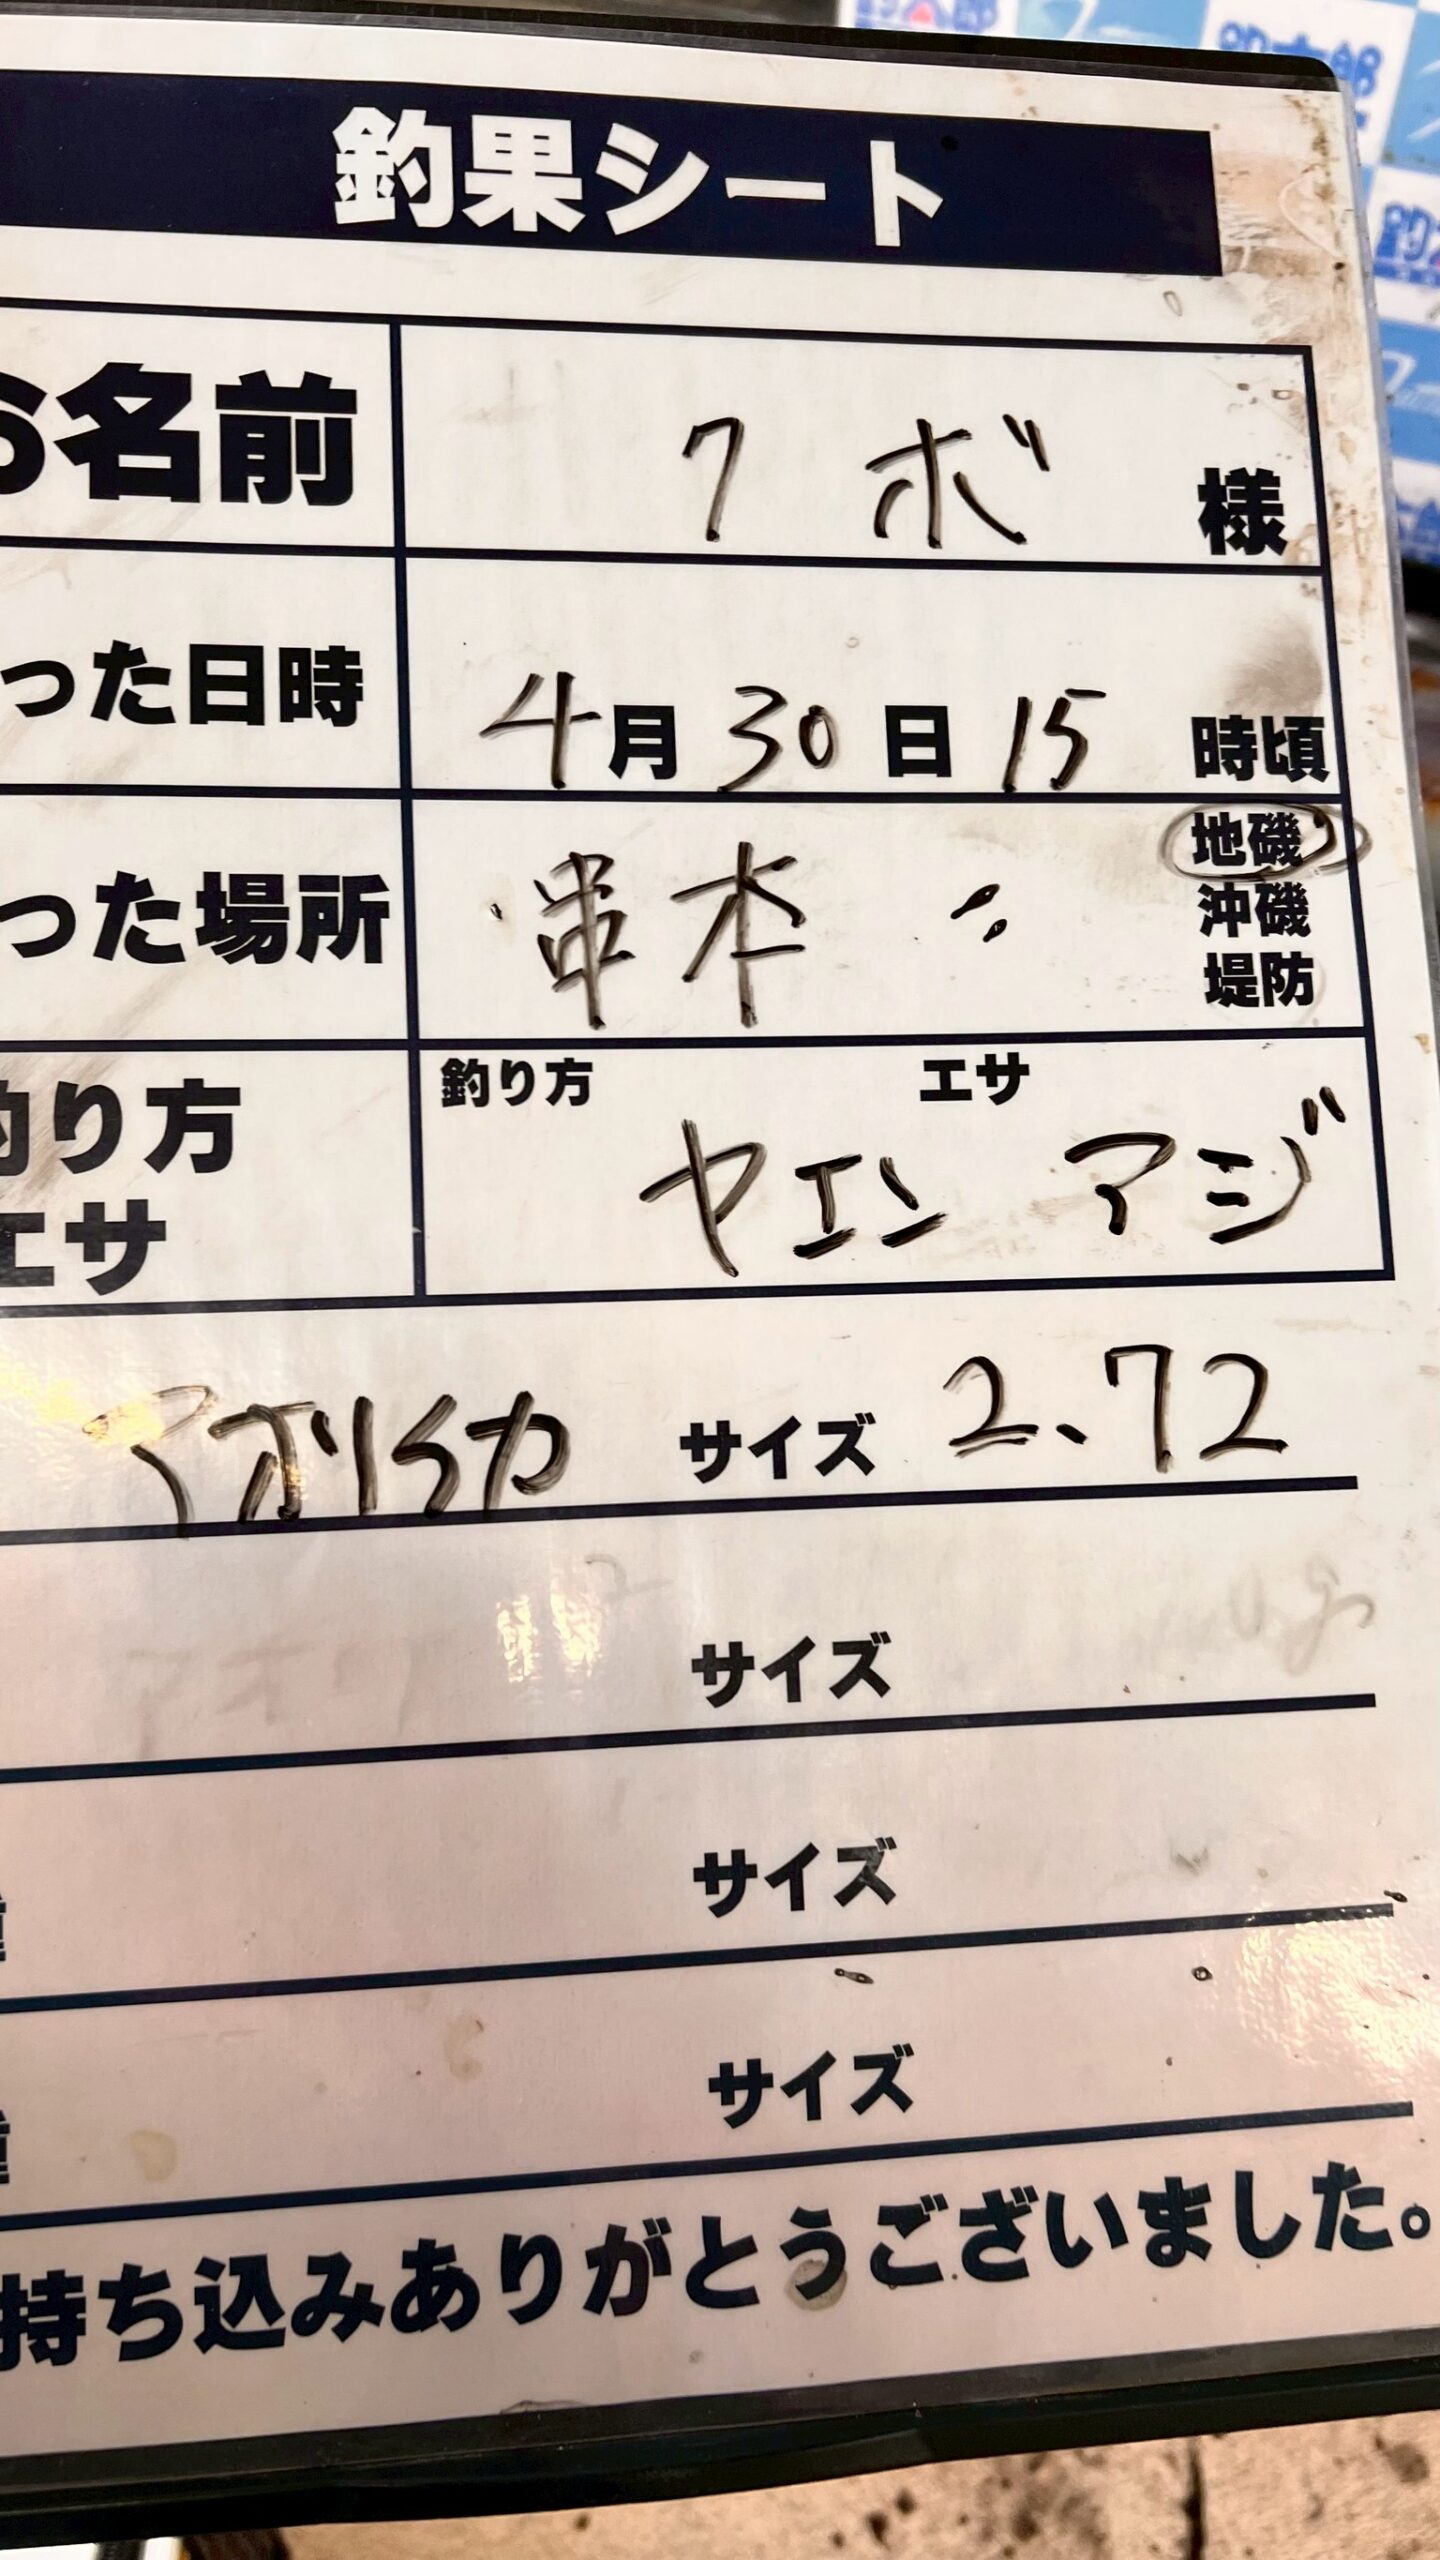 釣果シート
お名前 クボ 様
った日時 4月30日15 時頃
った場所 串本 地磯
沖磯
堤防
釣り方 釣り方 エサ
エサ ヤエン アジ
アオリイカ サイズ 2.72
サイズ
サイズ
サイズ
持ち込みありがとうございました。